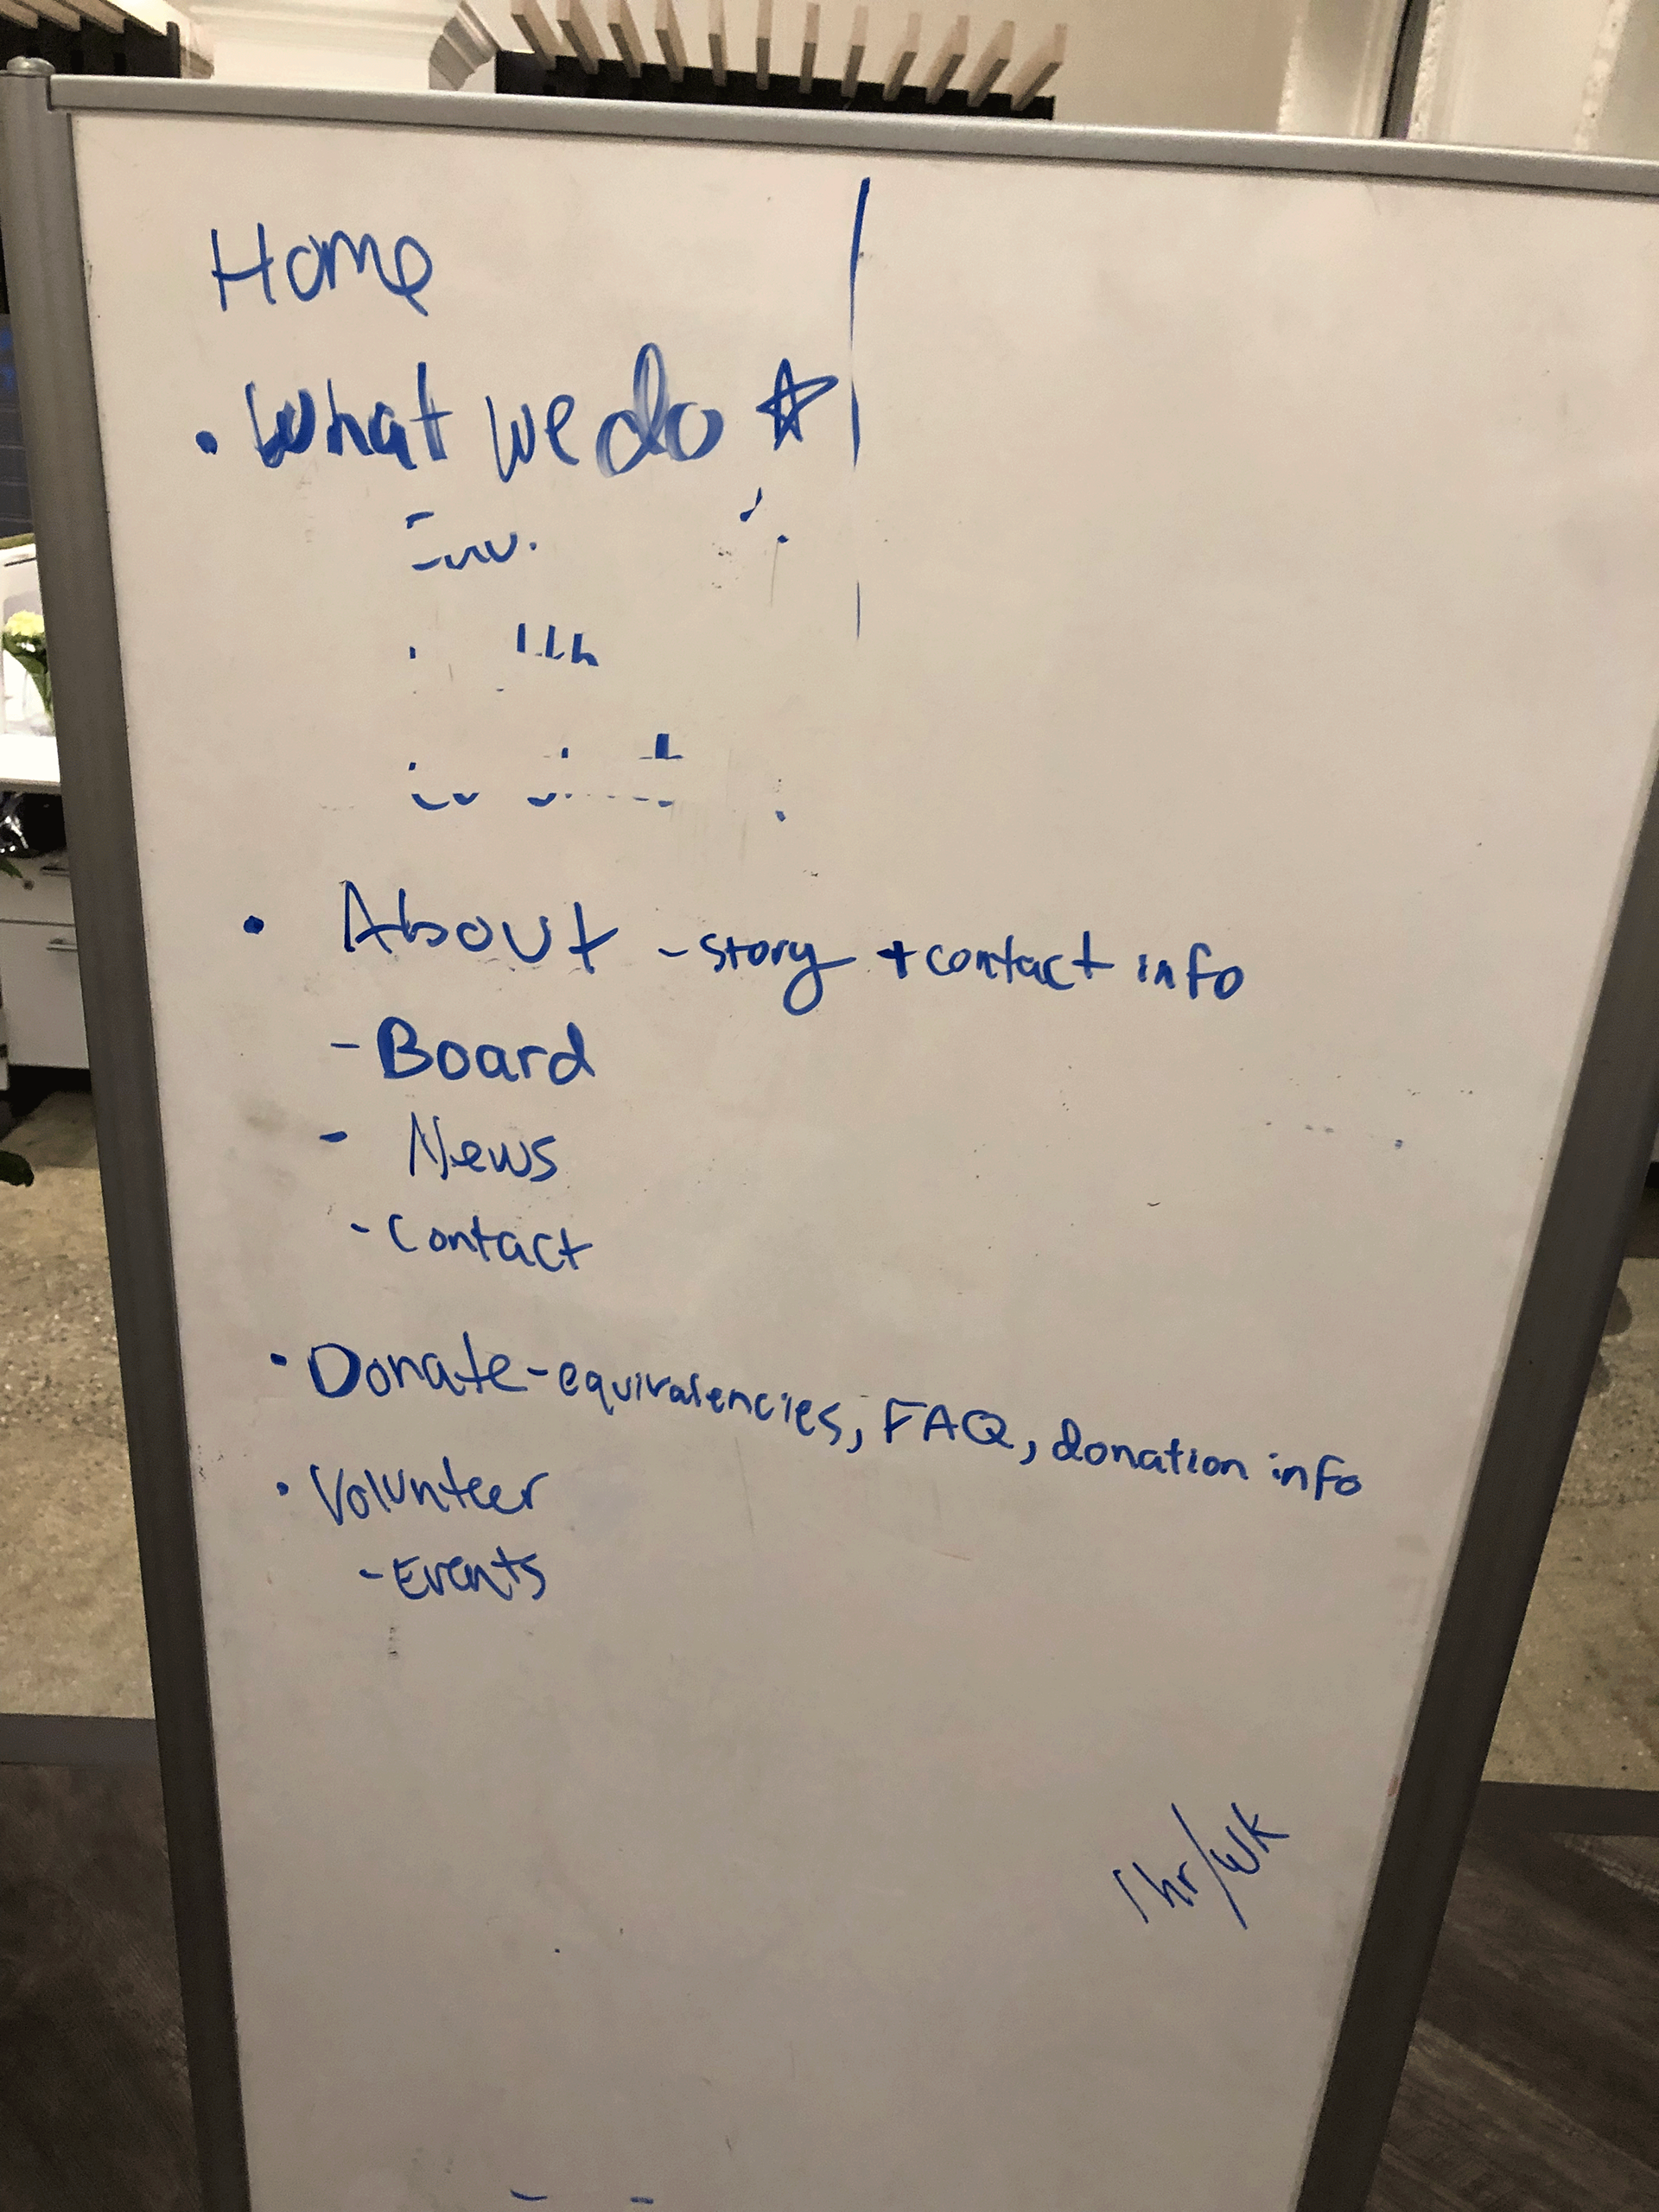 Home
• What we do ☆
Env.
• About - story + contact info
- Board
- News
- Contact
• Donate - equivalencies, FAQ, donation info
• Volunteer
- Events
1 hr/wk